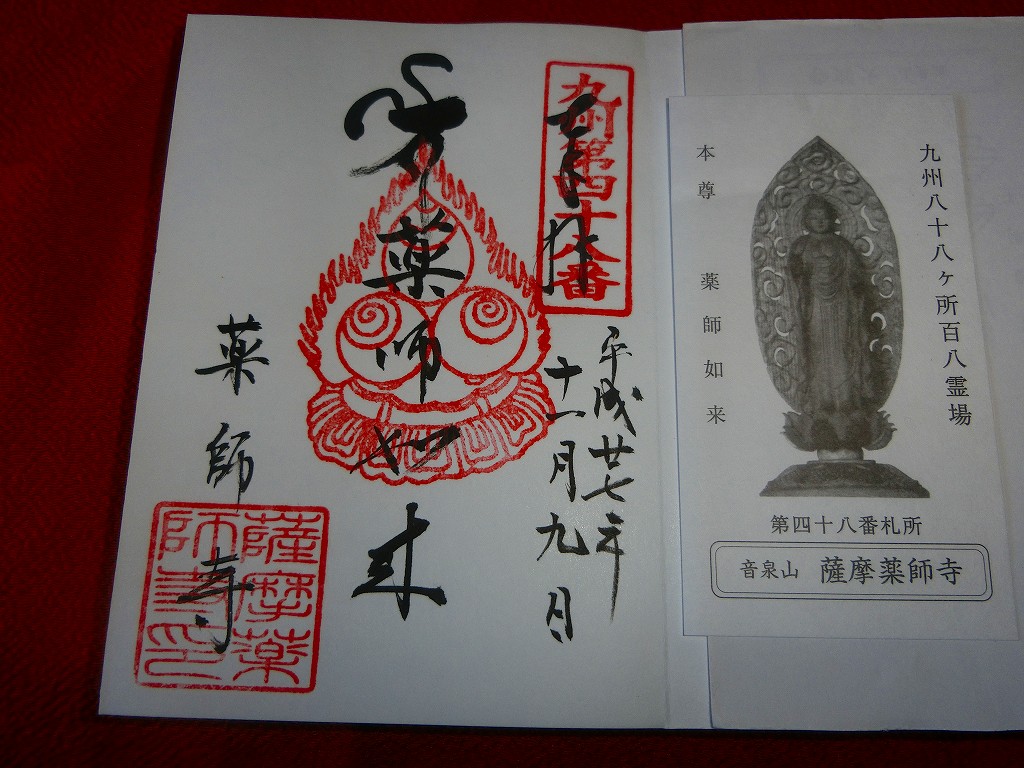 九州八十八ヶ所百八霊場
本尊　薬師如来
第四十八番札所
音泉山　薩摩薬師寺
九州第四十八番
奉拝
平成廿七年
十一月九日
薬師如来
薬師寺
薩摩薬
師寺印